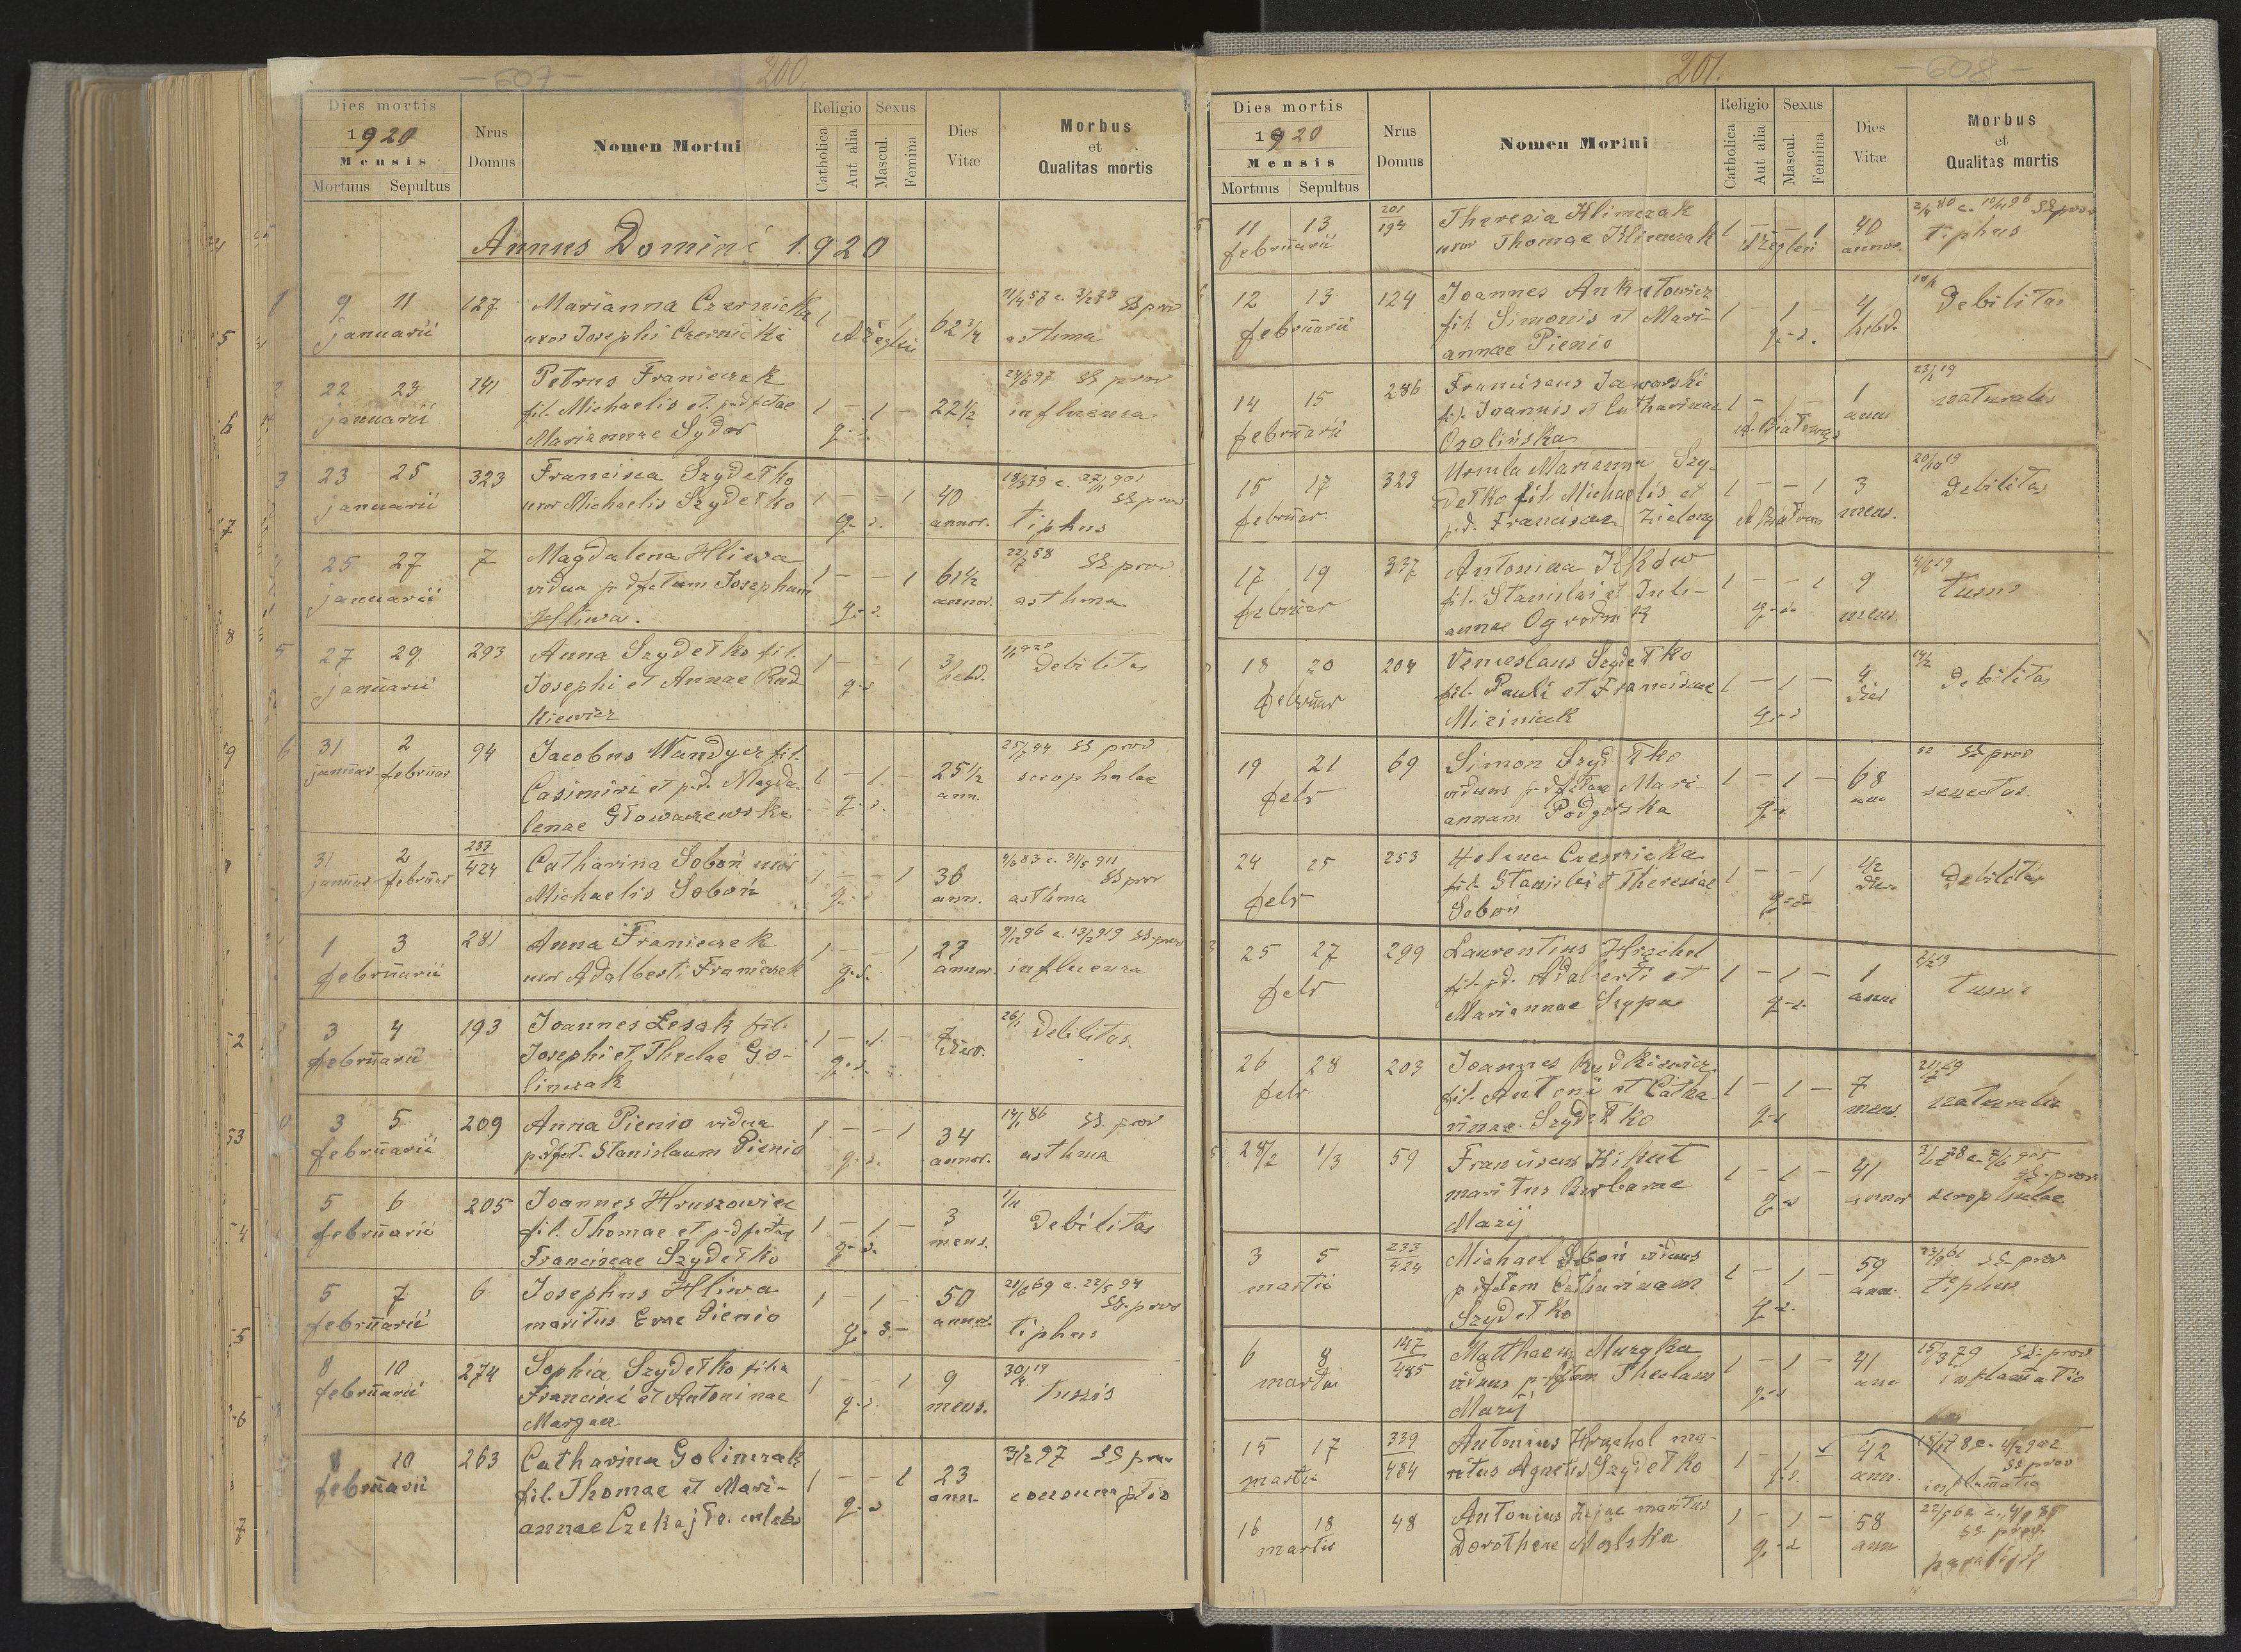 - 607 -
200.
Dies mortis
1920
Mensis
Mortuus Sepultus
Nrus Domus
Nomen Mortui
Religio
Catholica
Aut alia
Sexus
Mascul.
Femina
Dies Vitæ
Morbus
et
Qualitas mortis
Annus Domini 1920
1 9 11 127 Marianna Czernicka 1 - - 1 62 3/4 11/4 57 c. SS prov
januarii uxor Josephi Czernicki asthma
2 22 23 141 Petrus Franiczek 24/6 97 SS prov
januarii fil. Michaelis et p.dfctae 1 - 1 - 22 1/2 influenza
Mariannae Sydor q.s.
3 23 25 323 Francisca Szydełko 1 - - 1 40 18/3 79 c. 27/1 901 SS prov
januarii uxor Michaelis Szydełko q.s. annor. tiphus
25 27 7 Magdalena Hliwa 1 - - 1 61 1/2 22/7 58 SS prov
januarii vidua p. dfctum Josephum q.s. annor. asthma
Hliwa.
5 27 29 293 Anna Szydełko fil. 1 - - 1 3 debilitas
januarii Josephi et Annae Rud q.s. hebd.
kiewicz
6 31 2 94 Jacobus Wandycz fil. 1 - 1 - 25 1/2 25/7 94 SS prov
januar februar Casimiri et p.d. Magda q.s. ann. scrophulae
lenae Głowaczewska
31 2 233/424 Catharina Soboń uxor 1 - - 1 36 9/6 83 c. 31/5 911 SS prov
januar februar Michaelis Soboń q.s. ann. asthma
1 3 281 Anna Franiczek 1 - - 1 27 9/12 96 c. 13/2 919 SS prov
februarii uxor Adalberti Franiczek q.s. annor. influenza
3 4 193 Joannes Lesak fil. 1 - 1 - 7 26/1 Debilitas.
februarii Josephi et Theclae Go- q.s. dier.
linczak
3 5 209 Anna Pienio vidua 1 - - 1 34 14/1 86 SS. prov
februarii p. dfct. Stanislaum Pienio q.s. annor. asthma
5 6 205 Joannes Hruszowiec 1 - 1 - 3 1/11 Debilitas
februarii fil. Thomae et p.dfctae q.s. mens.
Franciscae Szydełko
5 7 6 Josephus Hliwa 1 - 1 - 50 21/6 69 c. 22/5 94 SS. prov
februarii maritus Evae Pienio q.s. annor. tiphus
8 10 274 Sophia Szydełko filia 1 - - 1 9 30/4 19
februarii Francisci et Antoninae q.s. mens. tussis
Margan
8 10 263 Catharina Golinczak 1 - - 1 23 3/2 97 SS prov
februarii fil. Thomae et Mari- q.s. ann. consumptio
annae Czekajło. caelebs
201.
- 608 -
Dies mortis
1920
Mensis
Mortuus Sepultus
Nrus Domus
Nomen Mortui
Religio
Catholica
Aut alia
Sexus
Mascul.
Femina
Dies Vitæ
Morbus
et
Qualitas mortis
11 13 201/194 Theresia Klimczak 1 - - 1 40 SS prov
februarii uxor Thomae Klimczak annor. tiphus
12 13 124 Joannes Ankutowicz 1 - 1 - 4 Debilitas
februarii fil. Simonis et Mari- q.s. hebd.
annae Pienio
14 15 286 Franciscus Jaworski 1 - 1 - 1 23/1 19 naturalis
februarii fil. Joannis et Catharinae anni
Osolińska
15 17 323 Ursula Marianna Szy- 1 - - 1 3 20/10 19 Debilitas
februar. dełko fil. Michaelis et mens.
p.d. Franciscae Zielony
17 19 337 Antonina Ilków 1 - - 1 9 tussis
februar fil. Stanislai et Juli- q.s. mens.
annae Ogrodnik
18 20 204 Venceslaus Szydełko 1 - 1 - 4 14/2 Debilitas
februar fil. Pauli et Franciscae q.s. dier
19 21 69 Simon Szydełko 1 - 1 - 68 52 SS prov
febr viduus p.dfctam Mari- q.s. ann senectus
annam Podgórska
24 25 253 Helena Czernicka 1 - - 1 1/2 Debilitas
febr fil. Stanislai et Theresiae q.s. diei
Soboń
25 27 299 Laurentius Hrachol 1 - 1 - 1 tussis
febr fil. p.d. Adalberti et q.s. anni
Mariannae Szypa
26 28 203 Joannes Rudkiewicz 1 - 1 - 7 naturalis
febr fil. Antonii et Catha q.s. mens.
rinae Szydełko
28/2 1/3 59 Franciscus Kikut 1 - 1 - 41 SS. prov
maritus Barbarae q.s. annor scrophulae
Mazij
3 5 233/424 Michael Soboń viduus 1 - 1 - 59 SS. prov
martii p dfctam Catharinam q.s. ann. tiphus
Szydełko
6 8 147/485 Matthaeus Muzyka 1 - 1 - 41 15/3 79 SS. prov
martii viduus p.dfctam Theclam q.s. ann inflamatio
Mazij
15 17 339/484 Antonius Hrachol ma- 1 - 1 42 SS prov
martii ritus Agnetis Szydełko q.s. ann. inflamatio
16 18 48 Antonius Zając maritus 1 - 1 - 58 SS prov.
martii Dorotheae q.s. ann